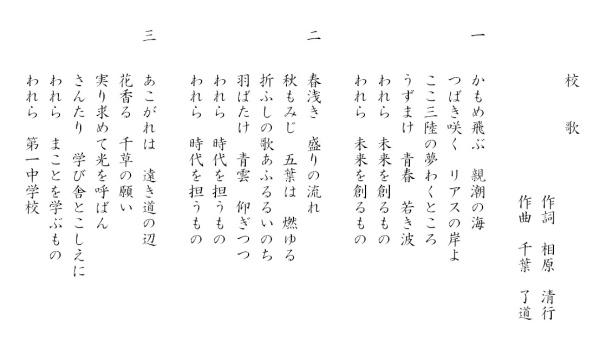 校歌
作詞 相原 清行
作曲 千葉 了道
一
かもめ飛ぶ 親潮の海
つばき咲く リアスの岸よ
ここ三陸の夢わくところ
うずまけ 青春 若き波
われら 未来を創るもの
われら 未来を創るもの
二
春浅き 盛りの流れ
秋もみじ 五葉は 燃ゆる
折ふしの歌あふるるいのち
羽ばたけ 青雲 仰ぎつつ
われら 時代を担うもの
われら 時代を担うもの
三
あこがれは 遠き道の辺
花香る 千草の願い
実り求めて光を呼ばん
さんたり 学び舎とこしえに
われら まことを学ぶもの
われら 第一中学校